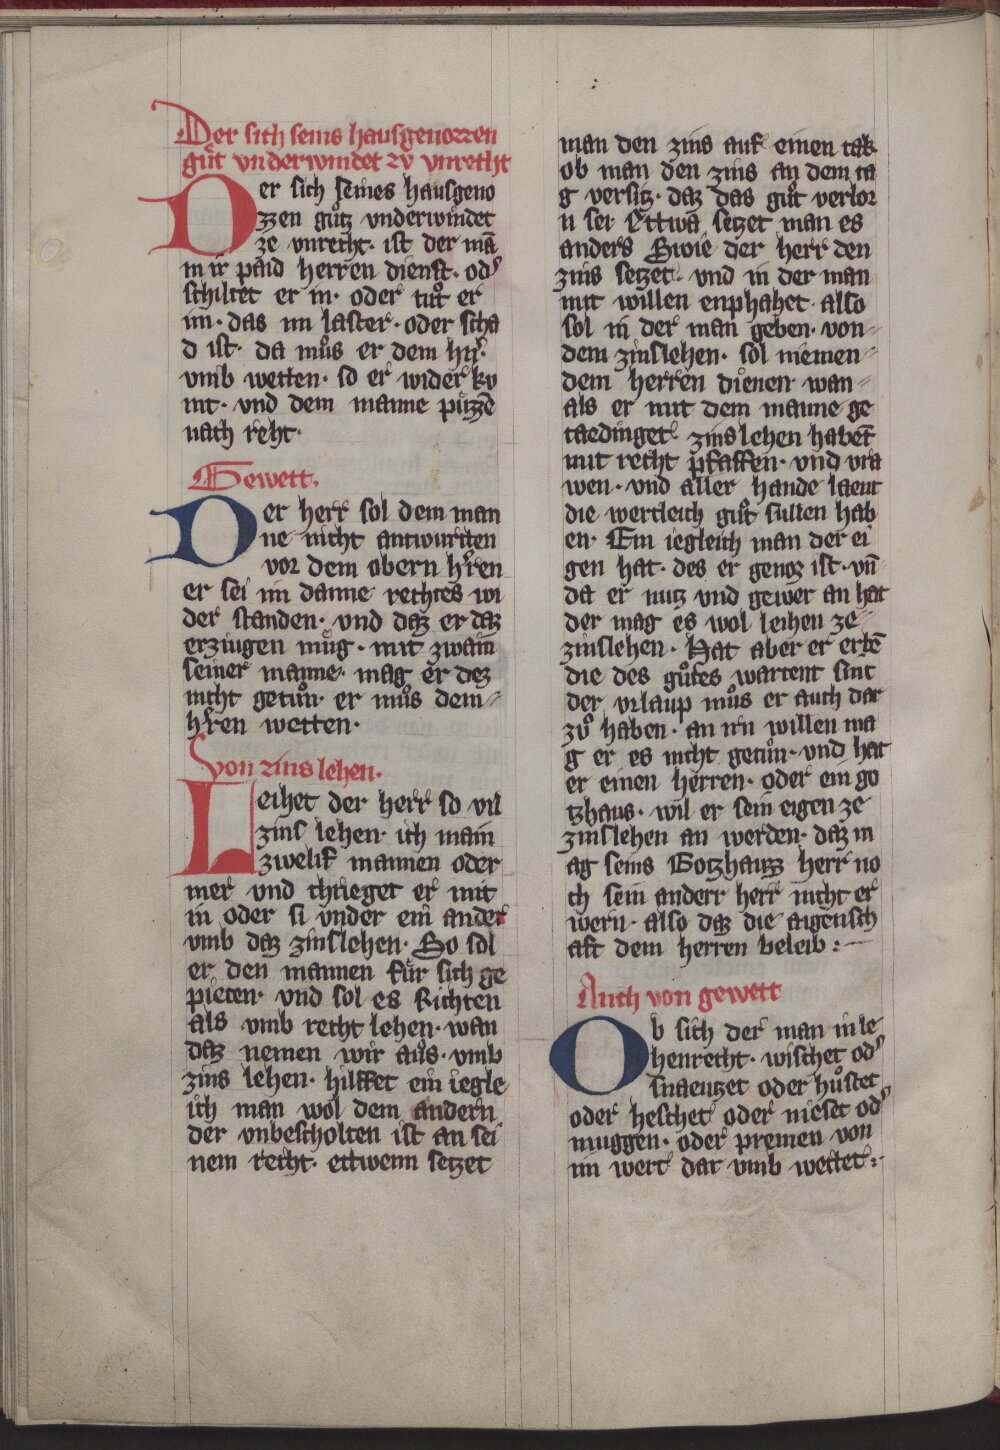 Der sich seins hausgenozzen
guͤt vnderwindet zv vnrecht
Der sich seines hausgeno
zzen guͤtz vnderwindet
ze vnrecht· ist der mā
in ir paid herren dienst· od᾽
schiltet er in· oder tuͦt er
im· das im laster· oder scha
d ist· da muͦs er dem h᾽r᾽·
vmb wetten· so er wider kv
mt· vnd dem manne puͤzzē
nach reht·
Gewett.
Der herr sol dem man
ne nicht antwurten
vor dem obern h᾽ren
er sei im danne rechtes wi
der standen· vnd daz er daz
erziugen muͤg· mit zwain
seiner manne· mag er dez
nicht getuͦn· er muͦs dem
h᾽ren wetten·
Von zins lehen·
Leihet der herr so vil
zins lehen· ich main
zwelif mannen oder
mer vnd chrieget er mit
in oder si vnder ein ander
vmb daz zinslehen· So sol
er den mannen fuͤr sich ge
pieten· vnd sol es Richten
als vmb recht lehen· wan
daz nemen wir auͦs· vmb
zins lehen· hilffet ein iegle
ich man wol dem andern
der vnbescholten ist an sei
nem recht· ettwenn setzet
man den zins auf einen tak
ob man den zins an dem ta
g versitz· daz das guͦt verlor
n sei· Ettwa setzet man es
anders Swie der herr den
zins setzet· vnd in der man
mit willen enphahet· also
sol in der man geben· von
dem zinslehen· sol niemen
dem herren dienen wan
als er mit dem manne ge
taedinget· zinslehen habēt
mit recht pfaffen· vnd vra
wen· vnd aller hande laeut
die wertleich guͦt sullen hab
en· Ein iegleich man der ei
gen hat· des er genoz ist· vn̄
da er nutz vnd gewer an hat
der mag es wol leihen ze
zinslehen· Hat aber er erbē
die des guͦtes wartent sint
der vrlaup muͦs er auch dar
zuͦ haben· an irn willen ma
g er es nicht getuͦn· vnd hat
er einen herren· oder ein go
tzhaus· wil er sein eigen ze
zinslehen an werden· daz m
ag seins Gotzhauzz herr no
ch sein anderr herr nicht er
wern· also daz die aigensch
aft dem herren beleib:
Auch von gewett
Ob sich der man in le
henrecht· wischet od᾽
snaeutzet oder huͦstet
oder heschet oder nieset od᾽
muggen· oder premen von
im wert dar vmb wettet: